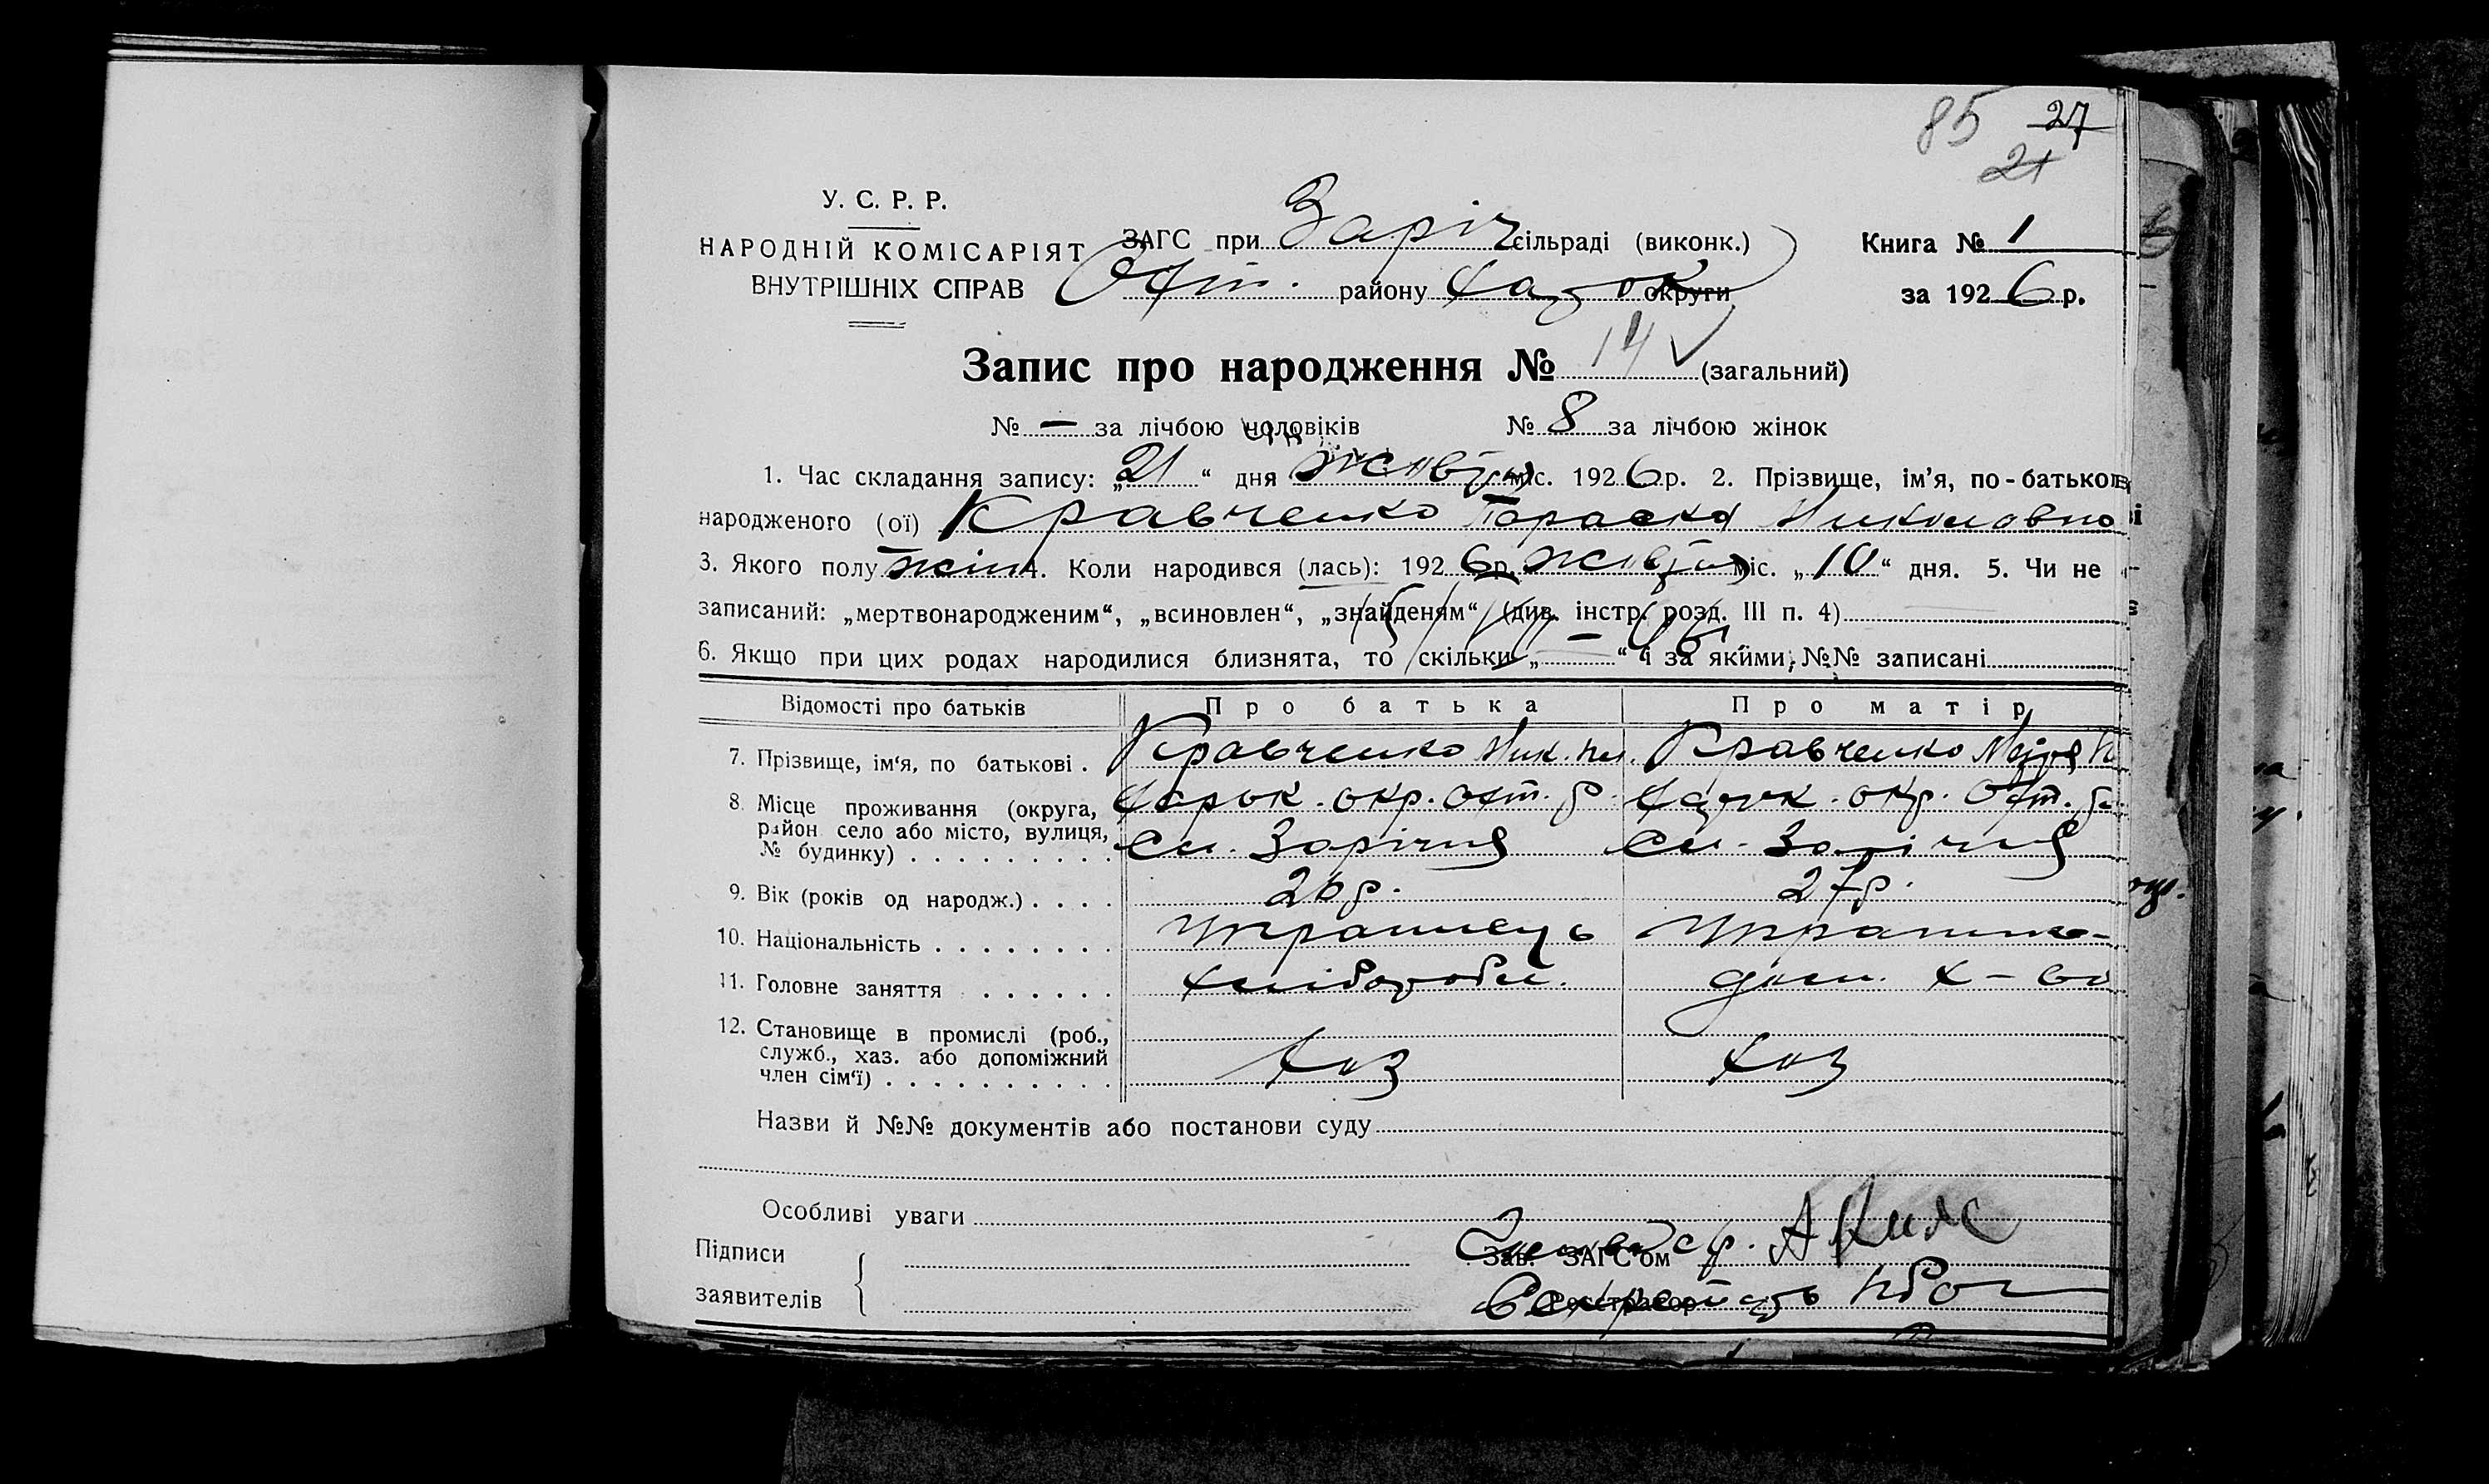 85 27
21
У. С. Р. Р.
НАРОДНІЙ КОМІСАРІЯТ
ВНУТРІШНІХ СПРАВ
ЗАГС при Заріч сільраді (виконк.)
Охт. району Хар. ок округи
Книга № 1
за 1926 р.
Запис про народження № 14 (загальний)
№ — за лічбою чоловіків № 8 за лічбою жінок
1. Час складання запису: „21“ дня жовтня міс. 1926 р. 2. Прізвище, ім'я, по-батькові
народженого (ої) Кравченко Параска Миколовна
3. Якого полу жін 4. Коли народився (лась): 1926 р. жовтня міс. „10“ дня. 5. Чи не
записаний: „мертвонародженим“, „всиновлен“, „знайденям“ (див. інстр. розд. III п. 4)
6. Якщо при цих родах народилися близнята, то скільки „—“ і за якими №№ записані
Відомості про батьків Про батька Про матір
7. Прізвище, ім'я, по батькові . Кравченко Мик. Кравченко Марія
8. Місце проживання (округа, Харьк. окр. Охт. р. Харьк. окр. Охт. р.
район село або місто, вулиця,
№ будинку) . . . . . . . . . сл. Зарічня сл. Зарічня
9. Вік (років од народж.) . . . . 26 р. 27 р.
10. Національність . . . . . . . Українець Українка
11. Головне заняття . . . . . . хлібороб. дом. х-во
12. Становище в промислі (роб.,
служб., хаз. або допоміжний
член сім'ї) . . . . . . . . . . хаз хаз
Назви й №№ документів або постанови суду
Особливі уваги
Підписи
заявителів
Зав. ЗАГС'ом
Реєстратор
Секретарь